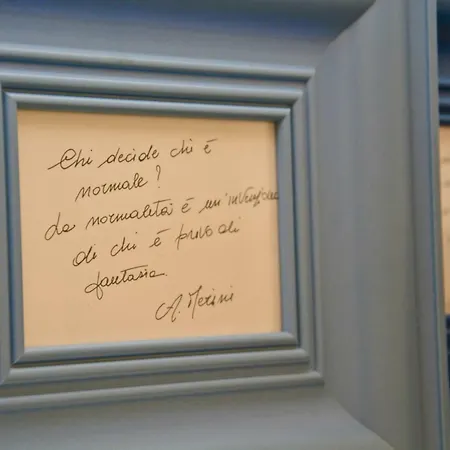 Chi decide chi è
normale?
La normalità è un'invenzione
di chi è privo di
fantasia.
A. Merini